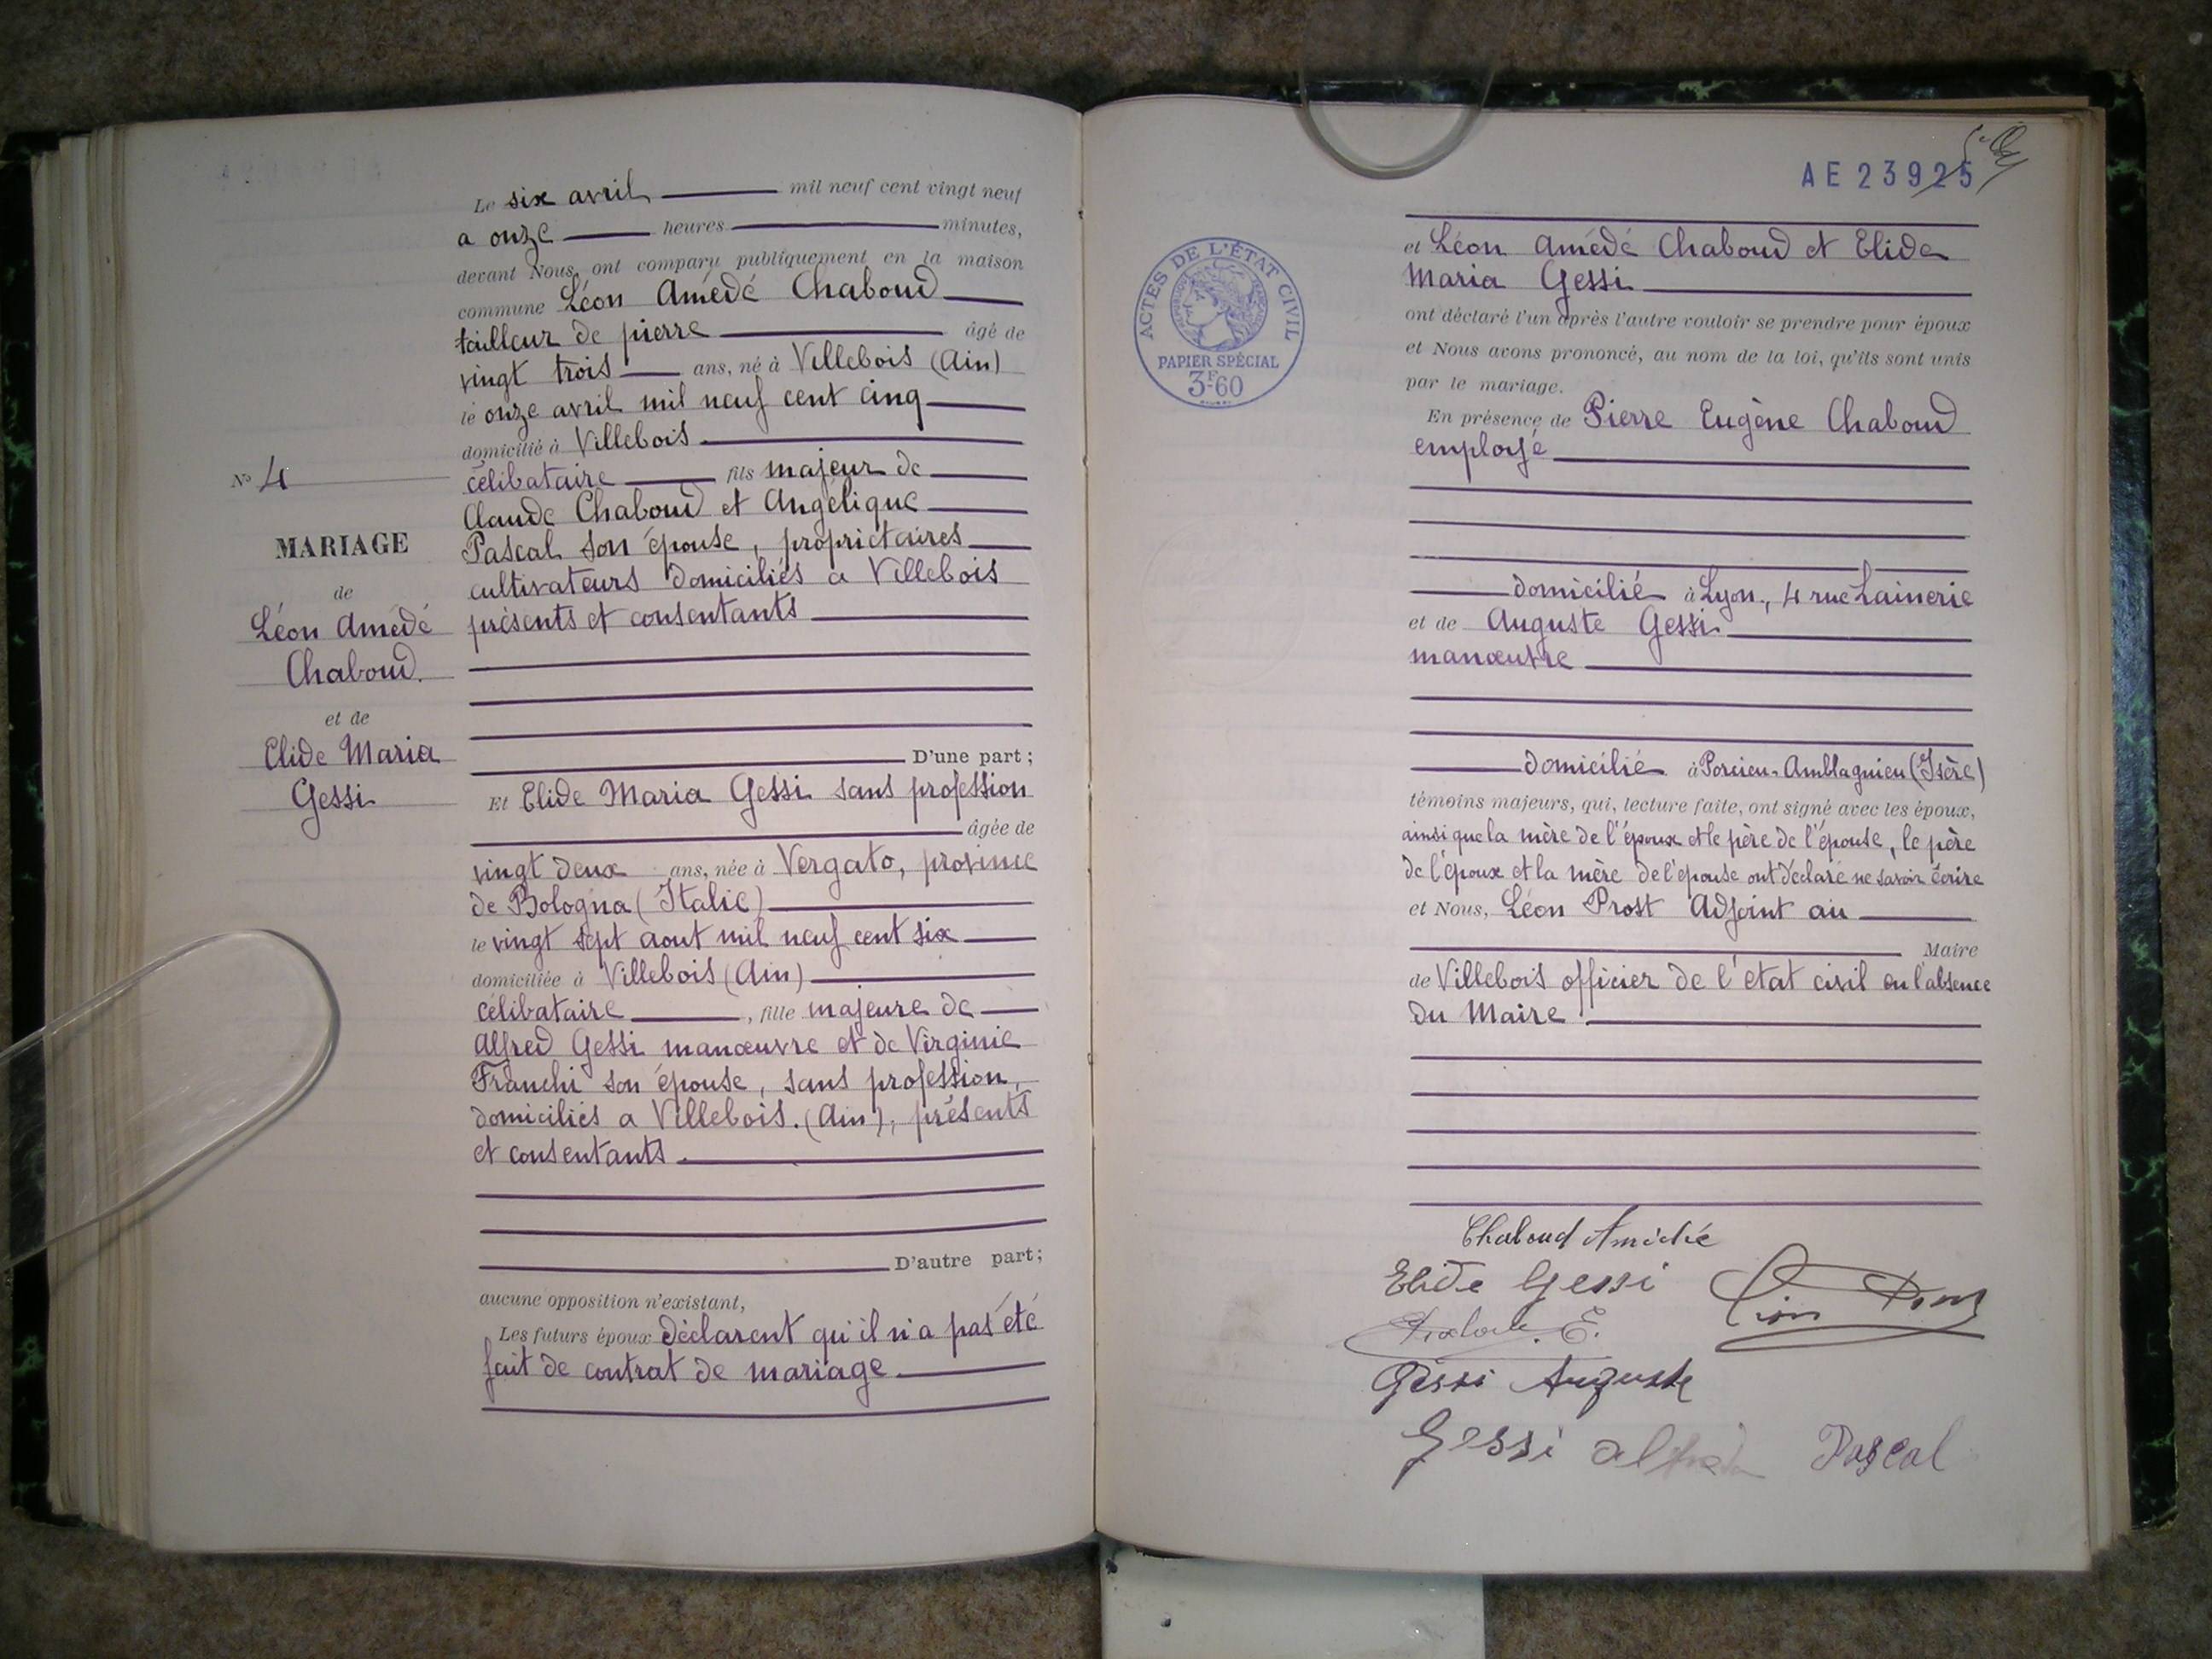 Le six avril mil neuf cent vingt neuf
a onze heures minutes,
devant Nous, ont comparu publiquement en la maison
commune Léon Amédé Chaboud
tailleur de pierre âgé de
vingt trois ans, né à Villebois (Ain)
le onze avril mil neuf cent cinq
domicilié à Villebois
célibataire fils majeur de
Claude Chaboud et Angélique
Pascal son épouse, propriétaires
cultivateurs domiciliés a Villebois
présents et consentants
D'une part;
Et Elide Maria Gessi sans profession
âgée de
vingt deux ans, née à Vergato, province
de Bologna (Italie)
le vingt sept aout mil neuf cent six
domiciliée à Villebois (Ain)
célibataire, fille majeure de
Alfred Gessi manœuvre et de Virginie
Franchi son épouse, sans profession,
domiciliés a Villebois. (Ain), présents
et consentants.
D'autre part;
aucune opposition n'existant,
Les futurs époux déclarent qu'il n'a pas été
fait de contrat de mariage
No 4
MARIAGE
de
Léon Amédé
Chaboud.
et de
Elide Maria
Gessi
AE 23925
ACTES DE L'ÉTAT CIVIL
PAPIER SPÉCIAL
3F.60
et Léon Amédé Chaboud et Elide
Maria Gessi
ont déclaré l'un après l'autre vouloir se prendre pour époux
et Nous avons prononcé, au nom de la loi, qu'ils sont unis
par le mariage.
En présence de Pierre Eugène Chaboud
employé
domicilié à Lyon, 4 rue Lainerie
et de Auguste Gessi
manœuvre
domicilié à Porcieu-Amblagnieu (Isère)
témoins majeurs, qui, lecture faite, ont signé avec les époux,
ainsi que la mère de l'époux et le père de l'épouse, le père
de l'époux et la mère de l'épouse ont déclaré ne savoir écrire
et Nous, Léon Prost Adjoint au
Maire
de Villebois officier de l'état civil en l'absence
du Maire.
Chaboud Amédée
Elide Gessi
E.
Gessi Auguste
Gessi Pascal